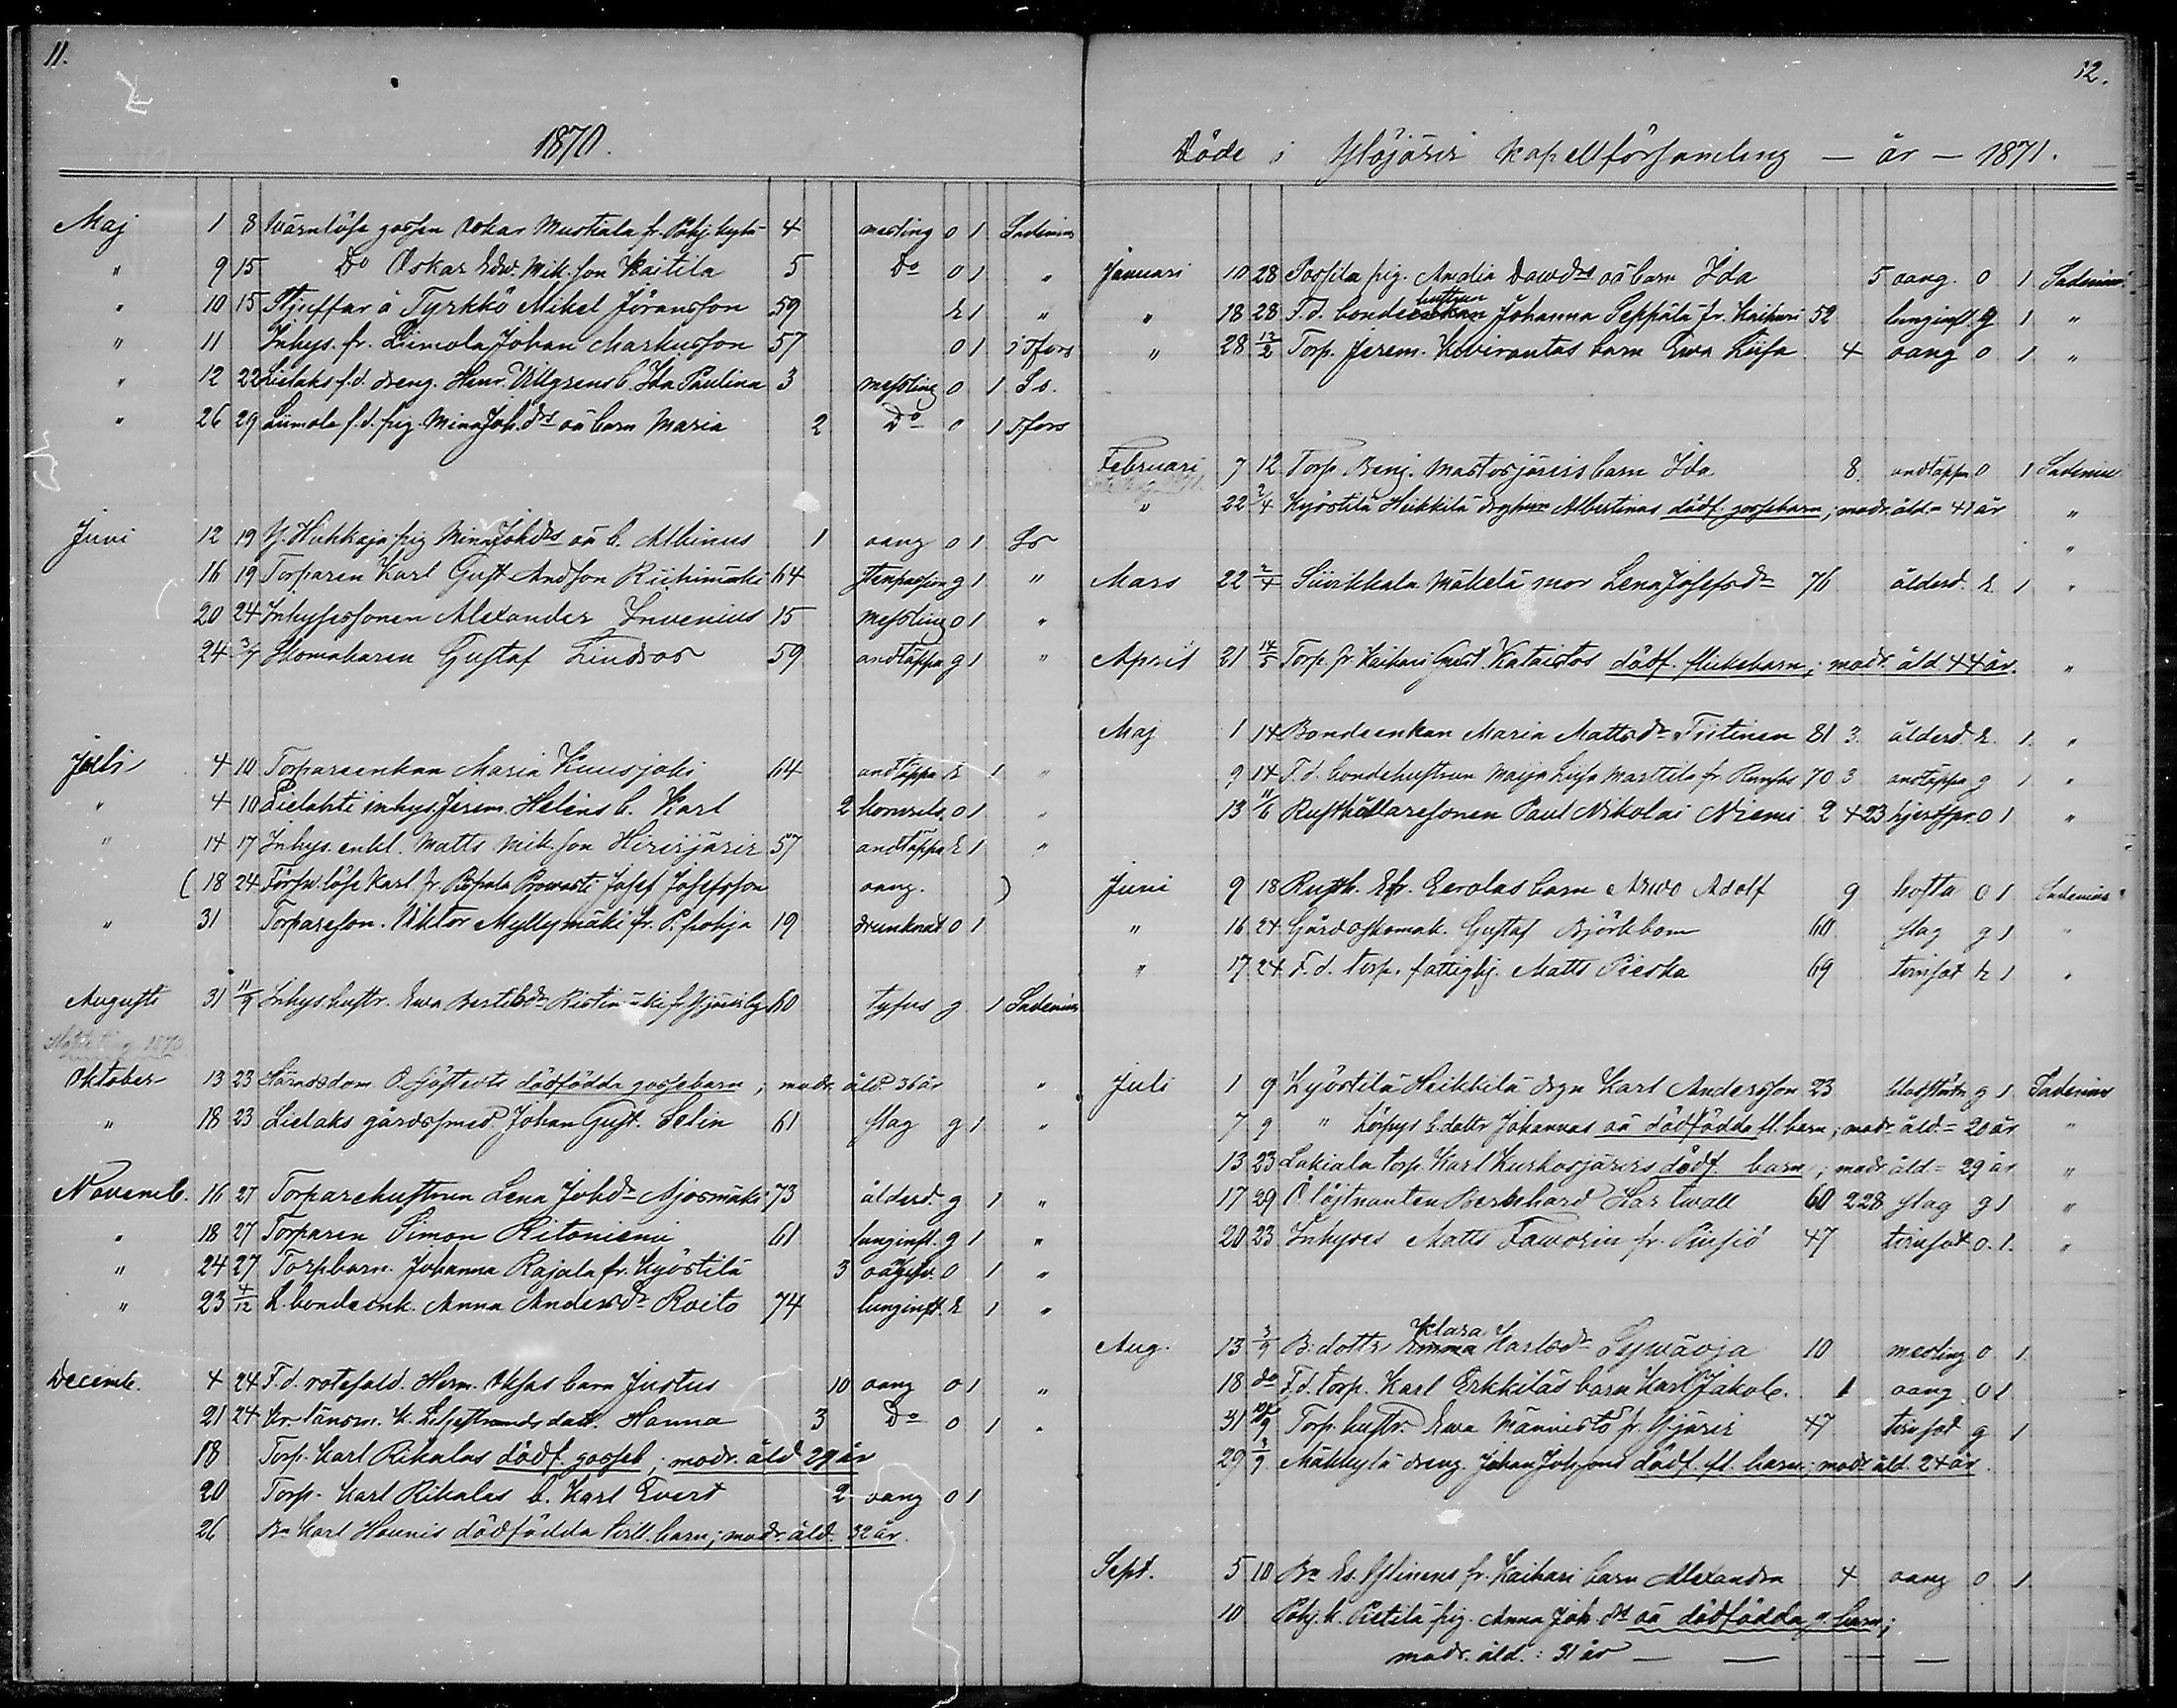 11.
1870.
Maj 1 8 Wärnlösa gossen Oskar Mustiala fr. Pohj. 4 mesling 0 1 Sadenius
" 9 15 Do Oskar Edw. Mik.son Kaitila 5 Do 0 1 "
" 10 15 å Tyrkkö Mikel Jöransson 59 E 1 "
" 11 Inhys. fr. Liimola Johan Markusson 57 0 1 i Tfors
" 12 22 Lielaks f.d. dreng. Henr. Ullgrens b. Ida Paulina 3 messling 0 1 Ss.
" 26 29 Liimola f.d. pig. Mina Joh.drs oä barn Maria 2 Do 0 1 Tfors
Juni 12 19 Y. Huhkaja pig Mina Johdrs oä b. Albinus 1 oang 0 1 Ss
16 19 Torparen Karl Gust. Andson Riihimäki 64 stenpassion g 1 "
20 24 Inhysessonen Alexander Invenius 15 messling 0 1 "
24 3/7 Skomakaren Gustaf Lindroos 59 andtäppa g 1 "
Juli 4 10 Torpareenkan Maria Kuusjoki 64 andtäppa E 1 "
" 4 10 Lielahti inhys. Jerem. Helins b. Karl 2 0 1 "
" 14 17 Inhys. enkl. Matts Mik.son Hirvijärvi 57 andtäppa E 1 "
( 18 24 Förswlöse Karl fr Pispala Prowasti Josef Josefsson oang. )
" 31 Torpareson. Viktor Myllymäki fr. P. pohja 19 drunknad 0 1
Augusti 31 11/9 Inhys hustr. Ewa Bertilsdr Ristimäki fr. Yjärvi by 60 tyfus g 1 Sadenius
Oktober 13 23 Häradsdom. O. dödfödda gossebarn; modr. åld. 36 år "
" 18 23 Lielaks gårdssmed Johan Gust. Selin 61 slag g 1 "
Novemb. 16 27 Torparehustrun Lena Johdr Ajosmäki 73 ålderd. g 1 "
" 18 27 Torparen Simon Ritoniemi 61 lunginfl. g 1 "
" 24 27 Torpbarn. Johanna Rajala fr. Kyöstilä 3 0 1 "
" 23 4/12 L. bondeenk. Anna Andersdr Roito 74 lunginfl. E 1 "
Decemb. 4 24 F. d. rotesold. Herm. barn Justus 10 oang 0 1 "
21 24 Kr. länsm. K. Liljestrands dott. Hanna 3 Do 0 1 "
18 Torp. Karl Rikalas dödf. gosseb; modr. åld 29 år
20 Torp. Karl Rikalas b. Karl Evert 2 oang 0 1
26 Bn Karl Haunis dödfödda barn; modr. åld. 32 år.
12.
Döde i Ylöjärvi kapellförsamling — år — 1871.
Januari 10 28 Pospila pig. Amalia Dawdrs oä barn Ida 5 oang. 0 1 Sadenius
" 18 28 F.d. bondehustrun Johanna Seppälä fr. Kaihari 52 lunginfl. g 1 "
" 28 12/2 Torp. Jerem. Kiwirantas barn Ewa Liisa 4 oang 0 1 "
Februari 7 12 Torp. Benj. Mastosjärvis barn Ida 8 andtäppa 0 1 Sadenius
" 22 2/4 Kyöstilä Heikkilä Albertinas dödf. gossebarn; modr. åld = 41 år "
Mars 22 2/4 Siivikkala Mäkelä mor Lena Josefsdr 76 ålderd. E 1 "
April 21 14/5 Torp. fr Kaihari Gust. Kataistos dödf. flickebarn; modr. åld. 44 år. "
Maj 1 14 Bondeenkan Maria Mattsdr Tiitinen 81 3 ålderd. E 1 "
9 14 F. d. bondehustrun Maija Liisa Marttila fr. 70 3 andtäppa g 1 "
13 11/6 Rusthållaresonen Paul Nikolai Niemi 2 4 23 0 1 "
Juni 9 18 Rusth. Ef. Eerolas barn Arwo Adolf 9 hosta 0 1 Sadenius
" 16 24 Gårdsskomak. Gustaf Björkbom 60 slag g 1 "
" 17 24 F. d. torp. fattighj. Matts Pieska 69 E 1 "
Juli 1 9 Kyöstilä Heikkilä drgn Karl Andersson 23 blodstörtn g 1 Sadenius
7 9 " b.dottr Johannas oä dödfödda fl. barn; modr. åld. = 20 år "
13 23 Lakiala torp. Karl Kurkosjärvis dödf. barn; modr. åld = 29 år "
17 29 Ö. löjtnanten Berhard Hartwall 60 2 28 slag g 1 "
20 23 Inhyses Matts Faworin fr. Pinsiö 47 0 1. "
Aug. 13 3/9 B: dottr Klara Karlsdr Sywäoja 10 mesling 0 1
18 do F.d. torp. Karl Erkkiläs barn Karl Jakob. 1 oang 0 1
31 10/9 Torp. hustr. Ewa Männistö fr. Yjärvi 47 g 1
29 3/9 Mäkkylä dreng. Johan Johsons dödf. fl. barn; modr. åld. 24 år.
Sept. 5 10 Bn Es. Ylinens fr. Kaihari barn Alexandra 4 oang 0 1
10 Pohj. k. Pietilä pig. Anna Joh.drs oä dödfödda g. barn;
modr. åld.: 31 år — — — —